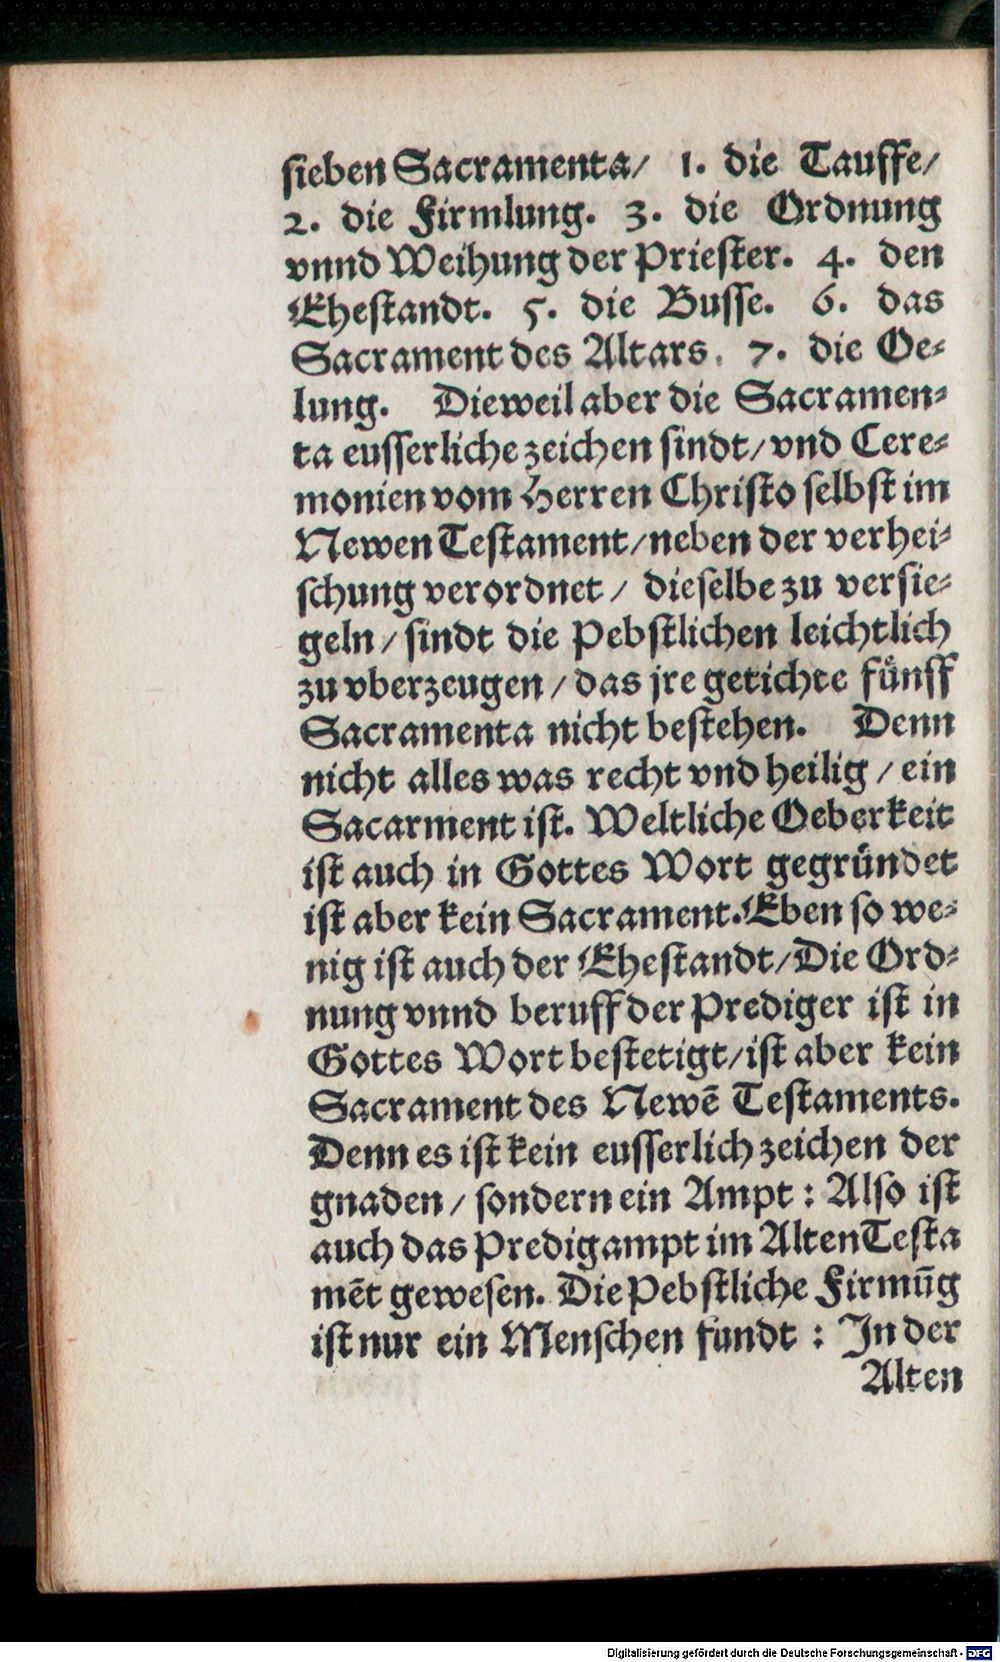 sieben Sacramenta/ 1. die Tauffe/
2. die Firmlung. 3. die Ordnung
vnnd Weihung der Priester. 4. den
Ehestandt. 5. die Busse. 6. das
Sacrament des Altars. 7. die Oe-
lung. Dieweil aber die Sacramen-
ta eusserliche zeichen sindt/ vnd Cere-
monien vom Herren Christo selbst im
Newen Testament/ neben der verhei-
schung verordnet / dieselbe zu versie-
geln / sindt die Pebstlichen leichtlich
zu vberzeugen / das jre getichte fünff
Sacramenta nicht bestehen. Denn
nicht alles was recht vnd heilig / ein
Sacarment ist. Weltliche Oeberkeit
ist auch in Gottes Wort gegründet
ist aber kein Sacrament. Eben so we-
nig ist auch der Ehestandt/ Die Ord-
nung vnnd beruff der Prediger ist in
Gottes Wort bestetigt/ ist aber kein
Sacrament des Newē Testaments.
Denn es ist kein eusserlich zeichen der
gnaden / sondern ein Ampt : Also ist
auch das Predigampt im Alten Testa
mēt gewesen. Die Pebstliche Firmūg
ist nur ein Menschen fundt : In der
Alten
Digitalisierung gefördert durch die Deutsche Forschungsgemeinschaft - DFG